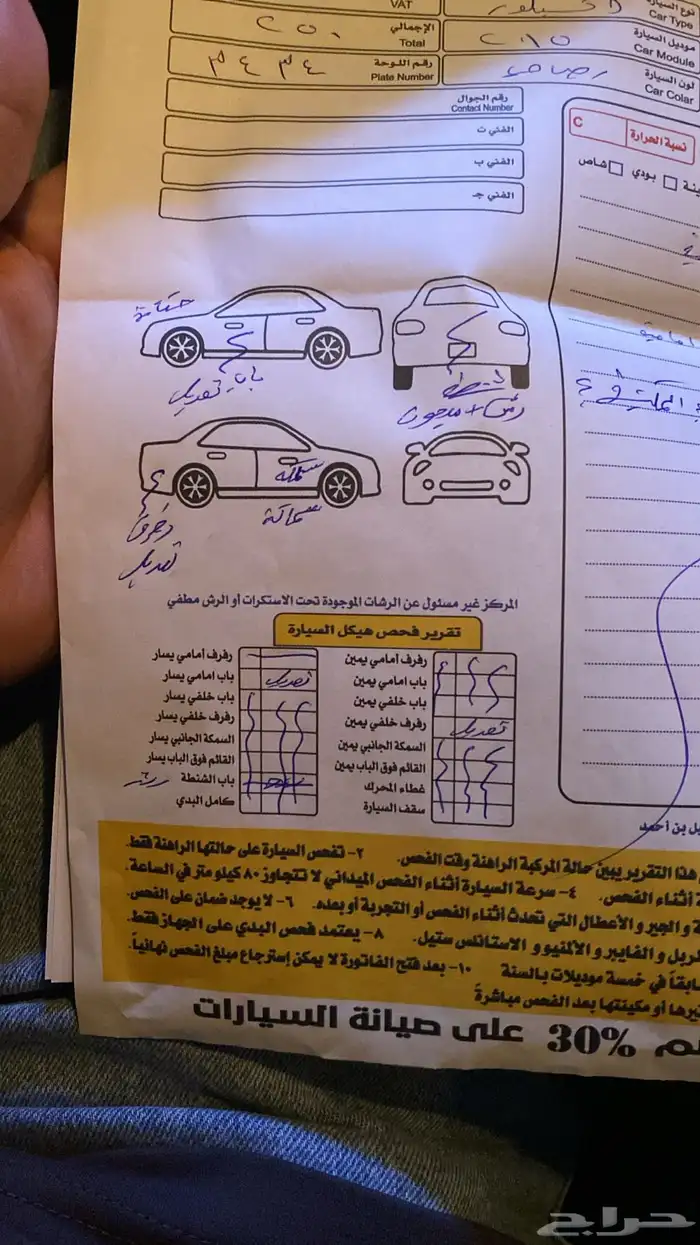 VAT
نوع السيارة
Car Type
الإجمالي
Total
٢٠٠
موديل السيارة
Car Module
٢٠١٥
رقم اللوحة
Plate Number
٣٤٣٤
لون السيارة
Car Colar
رصاصي
رقم الجوال
Contact Number
الفني ت
الفني ب
الفني جـ
نسبة الحرارة
C
بودي
شاص
باب تعديل
شنطة
رش + معجون
سمكة
سماكة
رفرف
تعديل
المركز غير مسئول عن الرشات الموجودة تحت الاستكرات أو الرش مطفي
تقرير فحص هيكل السيارة
رفرف أمامي يمين
رفرف أمامي يسار
باب امامي يمين
باب امامي يسار
تعديل
باب خلفي يمين
باب خلفي يسار
رفرف خلفي يمين
تعديل
رفرف خلفي يسار
السمكة الجانبي يمين
السمكة الجانبي يسار
القائم فوق الباب يمين
القائم فوق الباب يسار
غطاء المحرك
باب الشنطة
سقف السيارة
كامل البدي
يل بن أحمد
هذا التقرير يبين حالة المركبة الراهنة وقت الفحص. ٢- تفحص السيارة على حالتها الراهنة فقط.
أثناء الفحص. ٤- سرعة السيارة أثناء الفحص الميداني لا تتجاوز ٨٠ كيلو متر في الساعة.
و الجير و الأعطال التي تحدث أثناء الفحص أو التجربة أو بعده. ٦- لا يوجد ضمان على الفحص.
ربل و الفايبر و الالمنيو و الاستانلس ستيل. ٨- يعتمد فحص البدي على الجهاز فقط.
سابقاً في خمسة موديلات بالسنة ١٠- بعد فتح الفاتورة لا يمكن إسترجاع مبلغ الفحص نهائياً.
يرها أو مكينتها بعد الفحص مباشرة
30% على صيانة السيارات
حراج